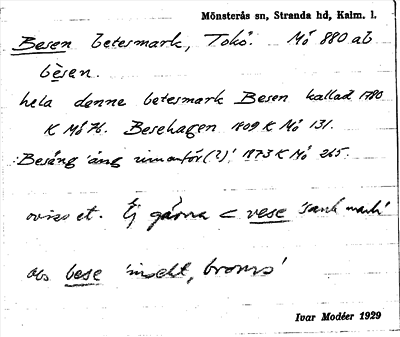 Mönsterås sn, Stranda hd, Kalm. l.
Besen betesmark, Tokö. Mö 880 ab
bèsen.
hela denne betesmark Besen kallad 1780
K Mö 76. Besehagen 1809 K Mö 131.
Besäng 'äng innanför(?)' 1873 K Mö 265.
ovisst et. Ej gärna < vese 'sank mark'
obs bese 'insekt, broms'
Ivar Modéer 1929